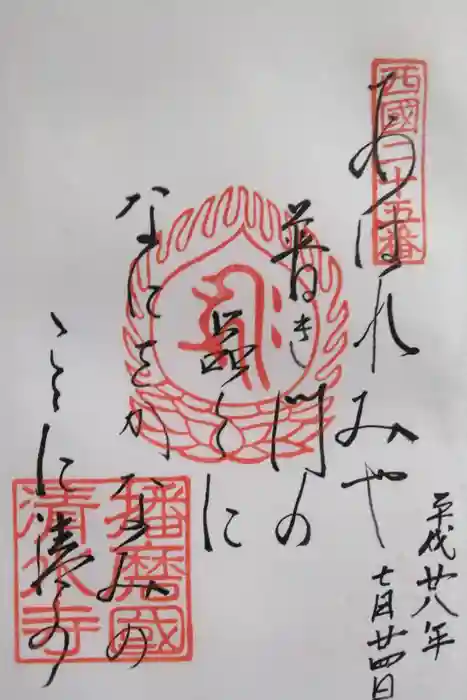 西國二十五番
あはれみや
普き門の
品〻に
なにをかなみの
こゝに清水
平成廿八年
七月廿四日
播磨國
清水寺